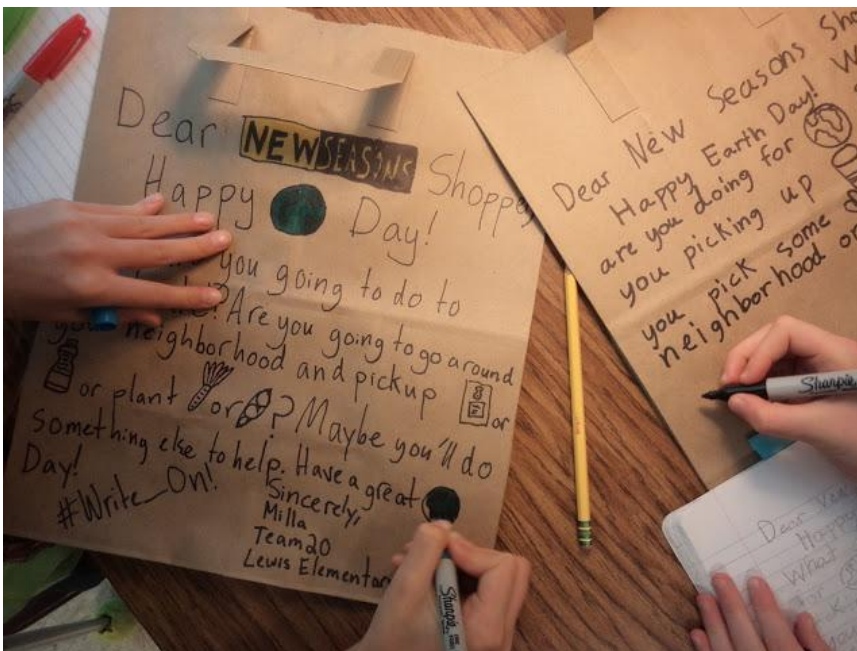 Dear NEW SEASONS Shoppe
Happy Day!
you going to do to
? Are you going to go around
neighborhood and pickup or
or plant or ? Maybe you'll do
something else to help. Have a great
Day!
#Write_On!
Sincerely,
Milla
Team 20
Lewis Elementar
Dear New Seasons Sho
Happy Earth Day! W
are you doing for
you picking up
you pick some
neighborhood or
Sharpie
Sharpie
Dear
Happy
What